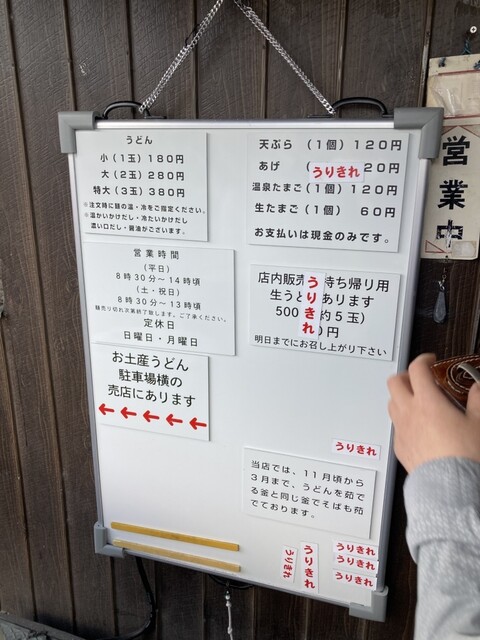 うどん
小(1玉)180円
大(2玉)280円
特大(3玉)380円
※注文時に麺の温・冷をご指定ください。
※温かいかけだし・冷たいかけだし
濃い口だし・醤油がございます。
営業時間
(平日)
8時30分〜14時頃
(土・祝日)
8時30分〜13時頃
麺売り切れ次第終了致します。ご了承ください。
定休日
日曜日・月曜日
お土産うどん
駐車場横の
売店にあります
天ぷら(1個)120円
あげ(
うりきれ
20円
温泉たまご(1個)120円
生たまご(1個)60円
お支払いは現金のみです。
店内販売
持ち帰り用
生うど
あります
500
約5玉)
円
うりきれ
明日までにお召し上がり下さい
うりきれ
当店では、11月頃から
3月まで、うどんを茹で
る釜と同じ釜でそばも茹
でております。
うりきれ
うりきれ
うりきれ
うりきれ
うりきれ
営業中